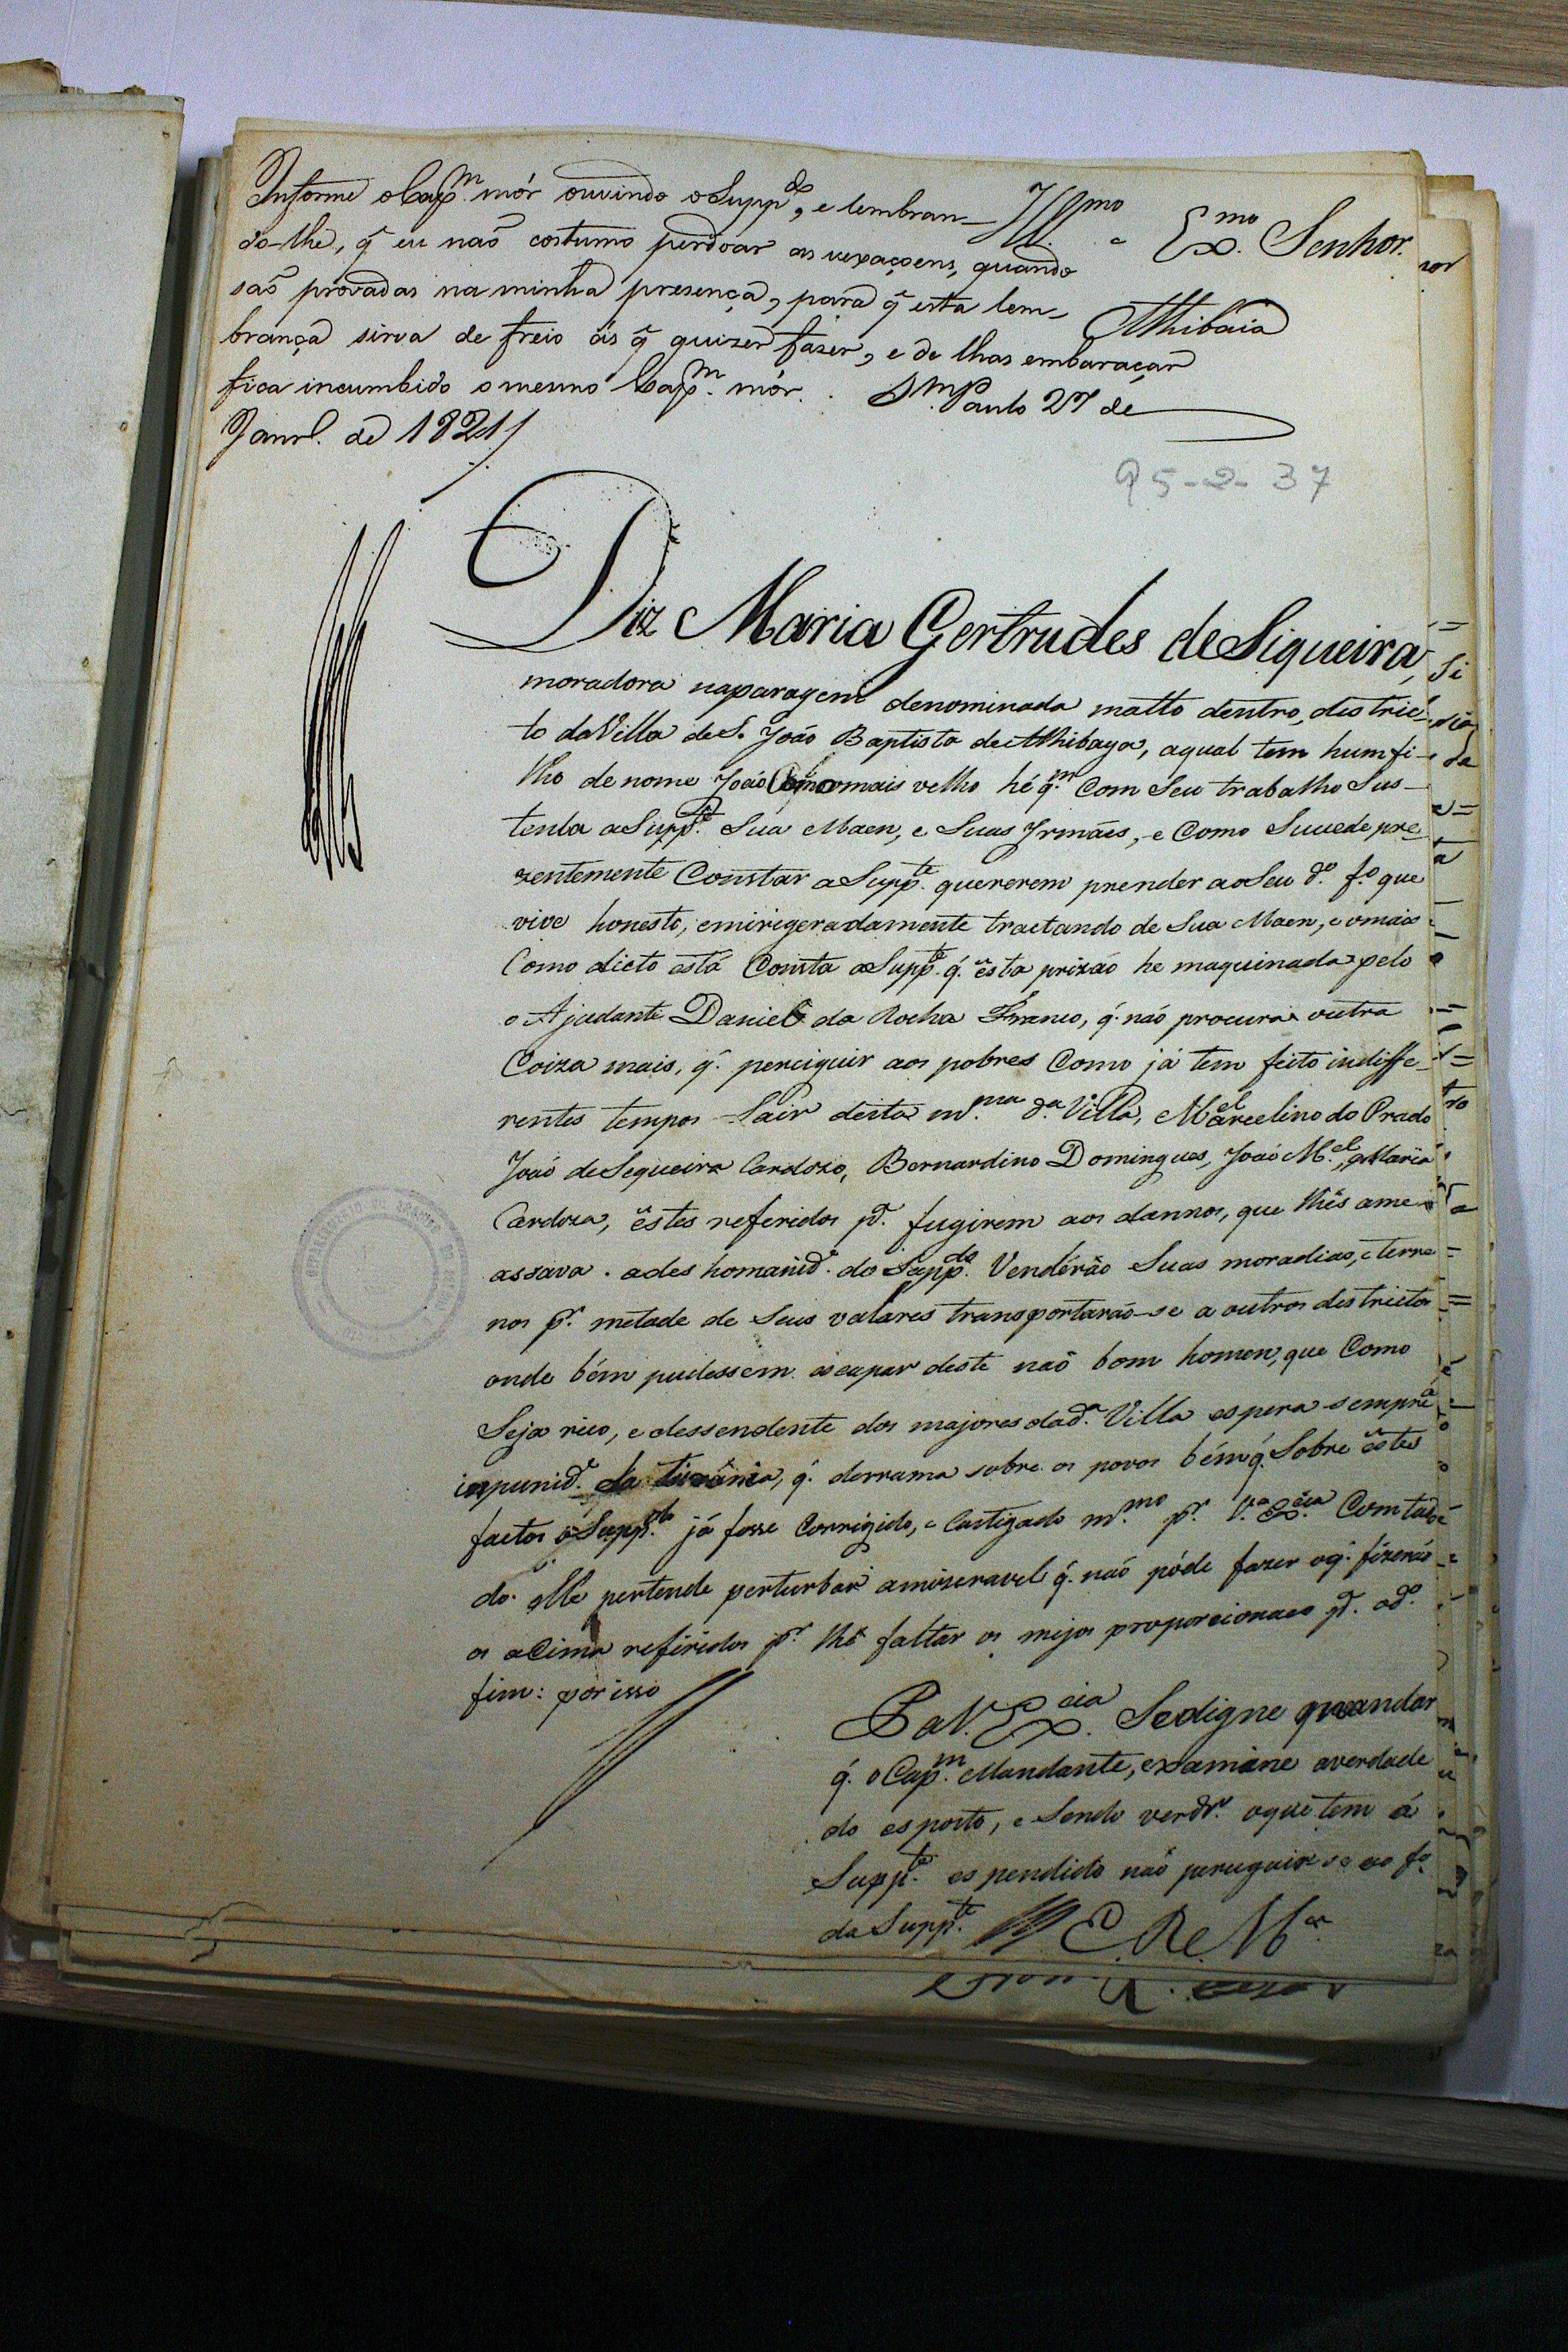 Informe o Cap.m mór ouvindo o Supp.do, e lembran-
do-lhe, q̃ eu naõ costumo perdoar as vexaçoens, quando
saõ provadas na minha presença, para q̃ esta lem-
brança sirva de freio ás q̃ quizer fazer, e de lhas embaraçar
fica incumbido o mesmo Cap.m mór. S.m Paulo 27 de
Janr.o de 1821
Ill.mo e Ex.mo Senhor.
Athibaia
95-2-37
Diz Maria Gertrudes de Siqueira,
moradora naparagem denominada matto dentro, destric-
to da Villa de S. João Baptista de Athibaya, aqual tem hum fi-
lho de nome João omais velho hé q.m com Seu trabalho Sus-
tenta a Supp.te Sua Maen, e Suas Irmãs, e Como Sucede pre-
zentemente Constar a Supp.te quererem prender aoSeu d.o f.o que
vive honesto, emirigeradamente tractando de Sua Maen, e omais
Como dicto está Consta a Supp.te q̃. esta prizão he maquinada pelo
o Ajudante Daniel da Rocha Franco, q̃. não procura outra
Coiza mais, q̃. perciguir aos pobres Como já tem feito indiffe-
rentes tempos Sair desta m.ma d.a Villa, Marcelino do Prado
João de Sequeira Cardozo, Bernardino Domingues, João M.el, e Maria
Cardoza, estes referidos p.a fugirem aos dannos, que lhes ame-
assava. a des homanid.e do Supp.do Venderão Suas moradias, e terre-
nos p.r metade de Seus valares transportarão-se a outros destrictos
onde bém pudessem escapar deste naõ bom homen, que Como
Seja rico, e dessendente dos majores dad.a Villa espera sempre a
impunid.e da tirania, q̃. derrama sobre os povos bém q̃. Sobre estes
factos o Supp.do já fosse Corrigido, e Castigado m.mo p.r V.a Ex.cia Com tu-
do elle pertende perturbar amizeravel q̃. não póde fazer oq̃. fizerão
os aCima refiridos p.r lhe faltar os mejos proporcionaes p.a od.o
fim: por isso
P a V. Ex.cia Sedigne mandar
q̃. o Cap.m Mandante, examine averdade
do esposto, e Sendo verd.e oque tem á
Supp.te espendido naõ perseguir-se ao f.o
da Supp.te E. R. e M.ce